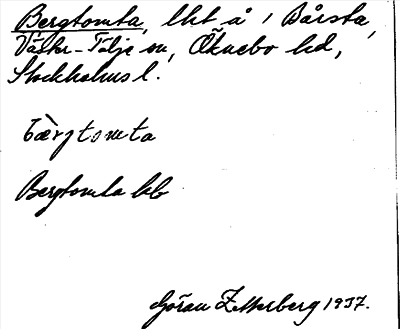 Bergtomta, lht å i Bårsta,
Väster-Tälje sn, Öknebo hd,
Stockholms l.
bærgtomta
Bergtomta hb
Göran Zetterberg 1937.